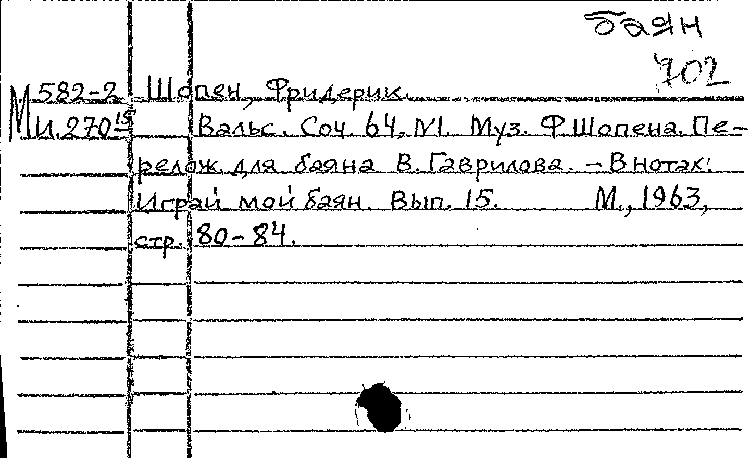 баян
702
М 582-2 Шопен, Фридерик.
И.270 15 Вальс. Соч. 64, N1. Муз. Ф.Шопена. Пе-
релож. для баяна В. Гаврилова. – В нотах:
Играй мой баян. Вып. 15. М., 1963,
стр. 80-84.